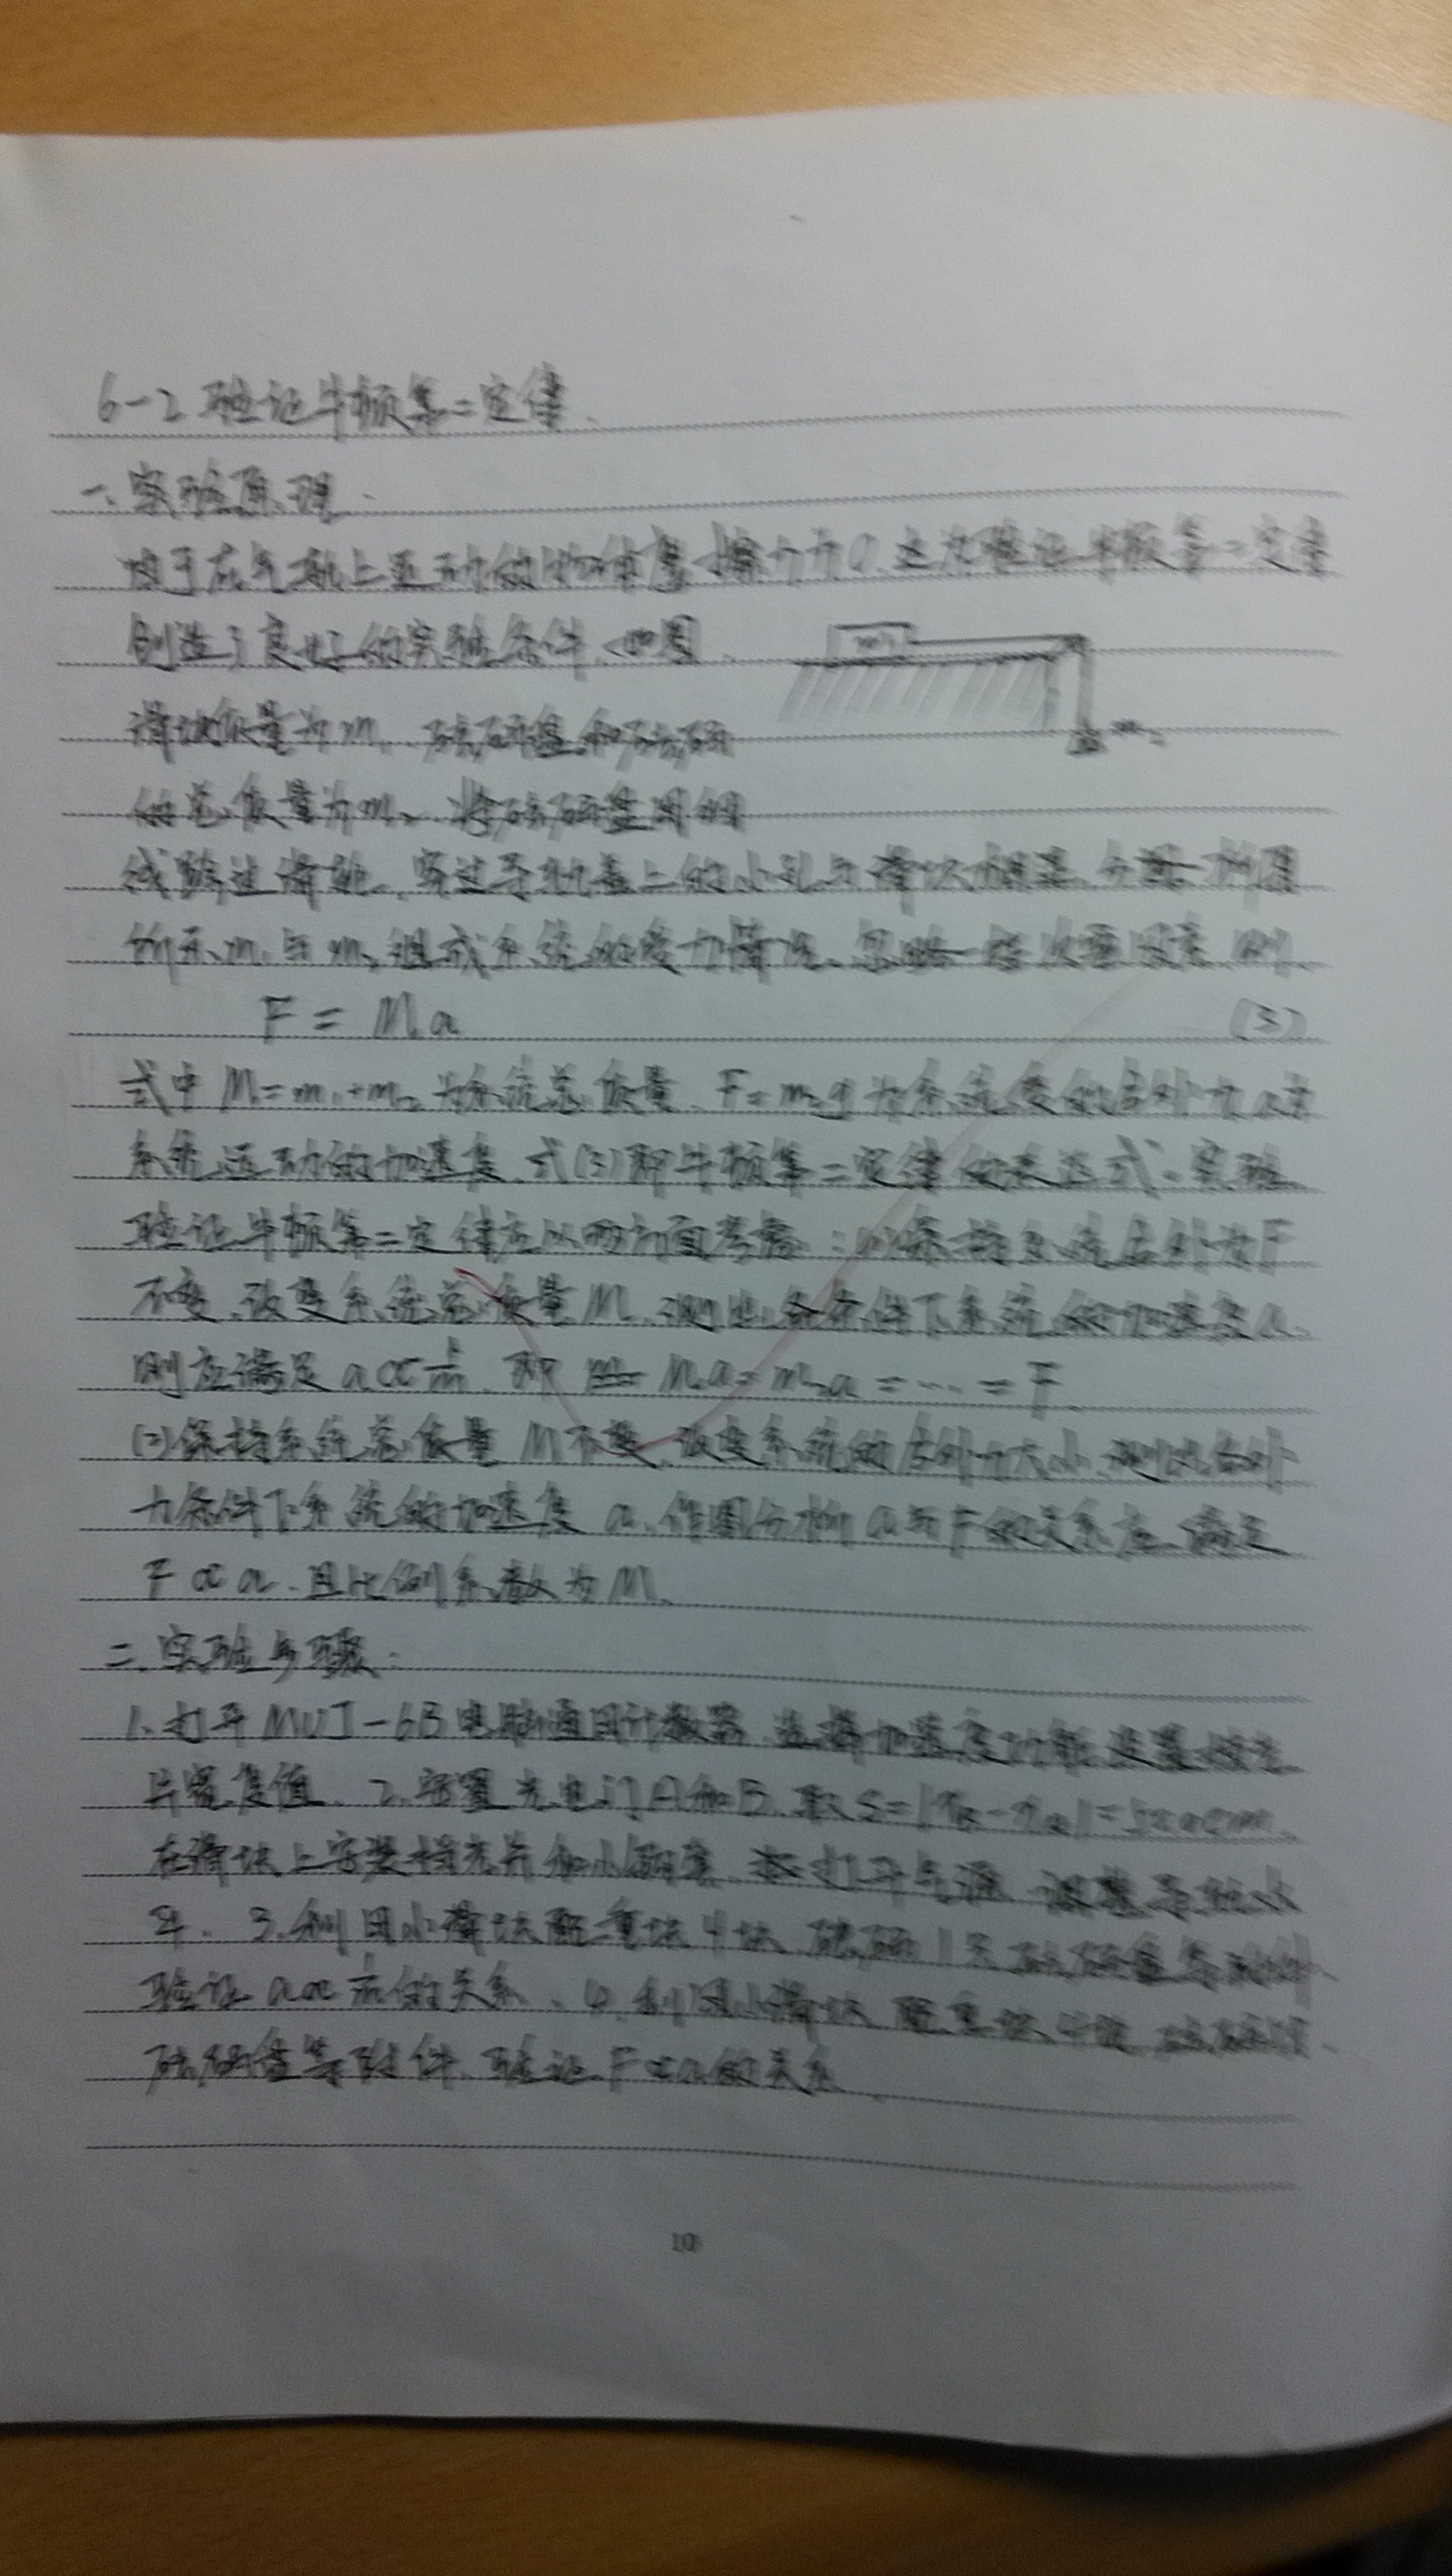 6-2 验证牛顿第二定律.
一、实验原理.
由于在气轨上运动的物体摩擦力为0.这为验证牛顿第二定律
创造了良好的实验条件、如图.
m₁
滑块质量为m₁、砝码盘和砝码
m₂
的总质量为m₂、将砝码盘用细
线跨过滑轮、穿过导轨盖上的小孔与滑块相连.分析
所示m₁与m₂组成系统的受力情况、忽略一些次要因素、则
F = Ma (3)
式中M=m₁+m₂为系统总质量、F=m₂g为系统受的合外力a为
系统运动的加速度.式(3)即牛顿第二定律的表达式.实验
验证牛顿第二定律应从两方面考虑:(1)保持系统合外力F
不变、改变系统总质量M、测出各条件下系统的加速度a、
则应满足 a∝ 即 M₁a₁= = … = F
(2)保持系统总质量M不变、改变系统的合外力大小、测出各外
力条件下系统的加速度a、作图分析a与F的关系应满足
F∝a、且比例系数为M、
二、实验步骤:
1、打开MUJ-6B电脑通用计数器、选择加速度功能设置挡光
片宽度值、2.安置光电门A和B、取S=
在滑块上安装挡光片和小 打开气源 调整导轨水
平. 3.利用小滑块配重块4块 砝码1只 砝码盘等附件、
验证a∝ 的关系、4.利用小滑块 配重块4块
砝码盘等附件、验证F∝a的关系
10